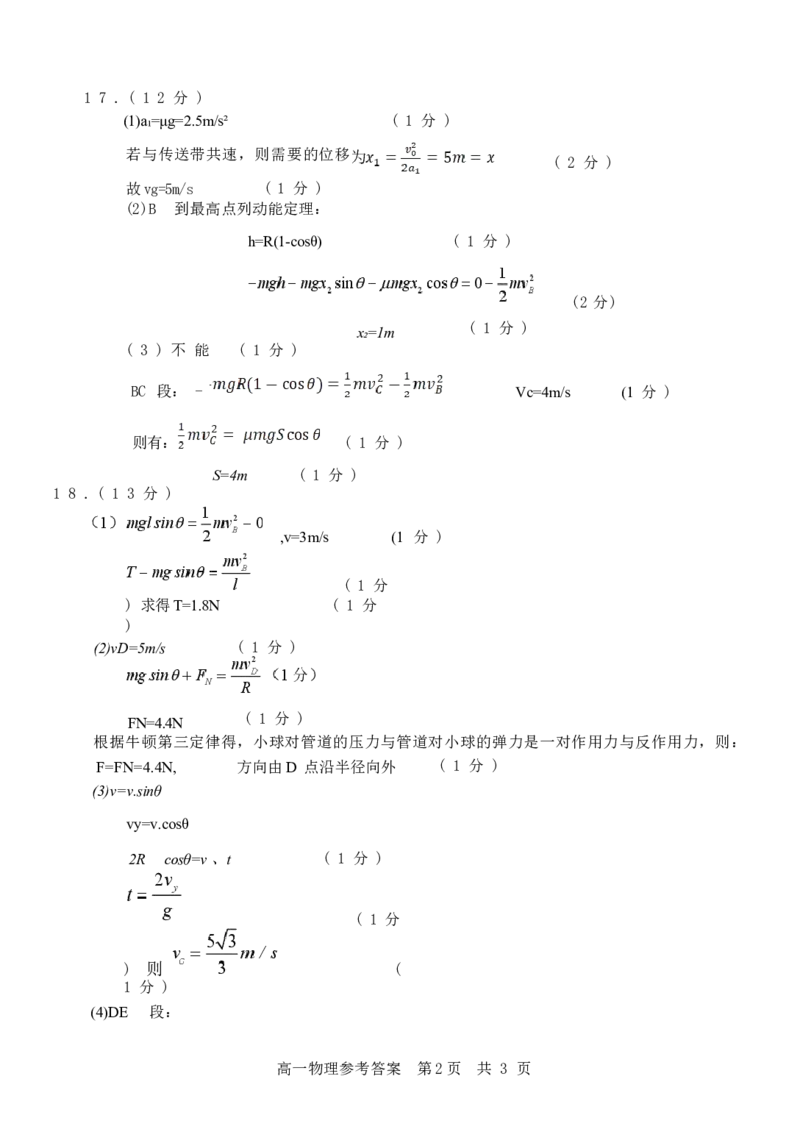 17.(12 分)
(1)a₁=μg=2.5m/s² (1 分)
若与传送带共速，则需要的位移为x₁ = v₀²/2a₁ = 5m = x (2 分)
故vg=5m/s (1 分)
(2)B 到最高点列动能定理：
h=R(1-cosθ) (1 分)
−mgh−mgx₂sinθ−μmgx₂cosθ=0−1/2 mv_B² (2分)
x₂=1m (1 分)
(3)不 能 (1 分)
BC 段： −mgR(1−cosθ)=1/2 mv_C² − 1/2 mv_B² Vc=4m/s (1 分)
则有：1/2 mv_C² = μmgScosθ (1 分)
S=4m (1 分)
18.(13 分)
(1) mglsinθ=1/2 mv_B²−0 ,v=3m/s (1 分)
T−mgsinθ=mv_B²/l (1 分
) 求得T=1.8N (1 分
)
(2)vD=5m/s (1 分)
mgsinθ+F_N=mv_D²/R (1分)
FN=4.4N (1 分)
根据牛顿第三定律得，小球对管道的压力与管道对小球的弹力是一对作用力与反作用力，则：
F=FN=4.4N, 方向由D 点沿半径向外 (1 分)
(3)v=v.sinθ
vy=v.cosθ
2R cosθ=v、t (1 分)
t=2v_y/g (1 分
) 则 v_G=5√3/3 m/s (
1 分)
(4)DE 段：
高一物理参考答案 第2页 共 3 页